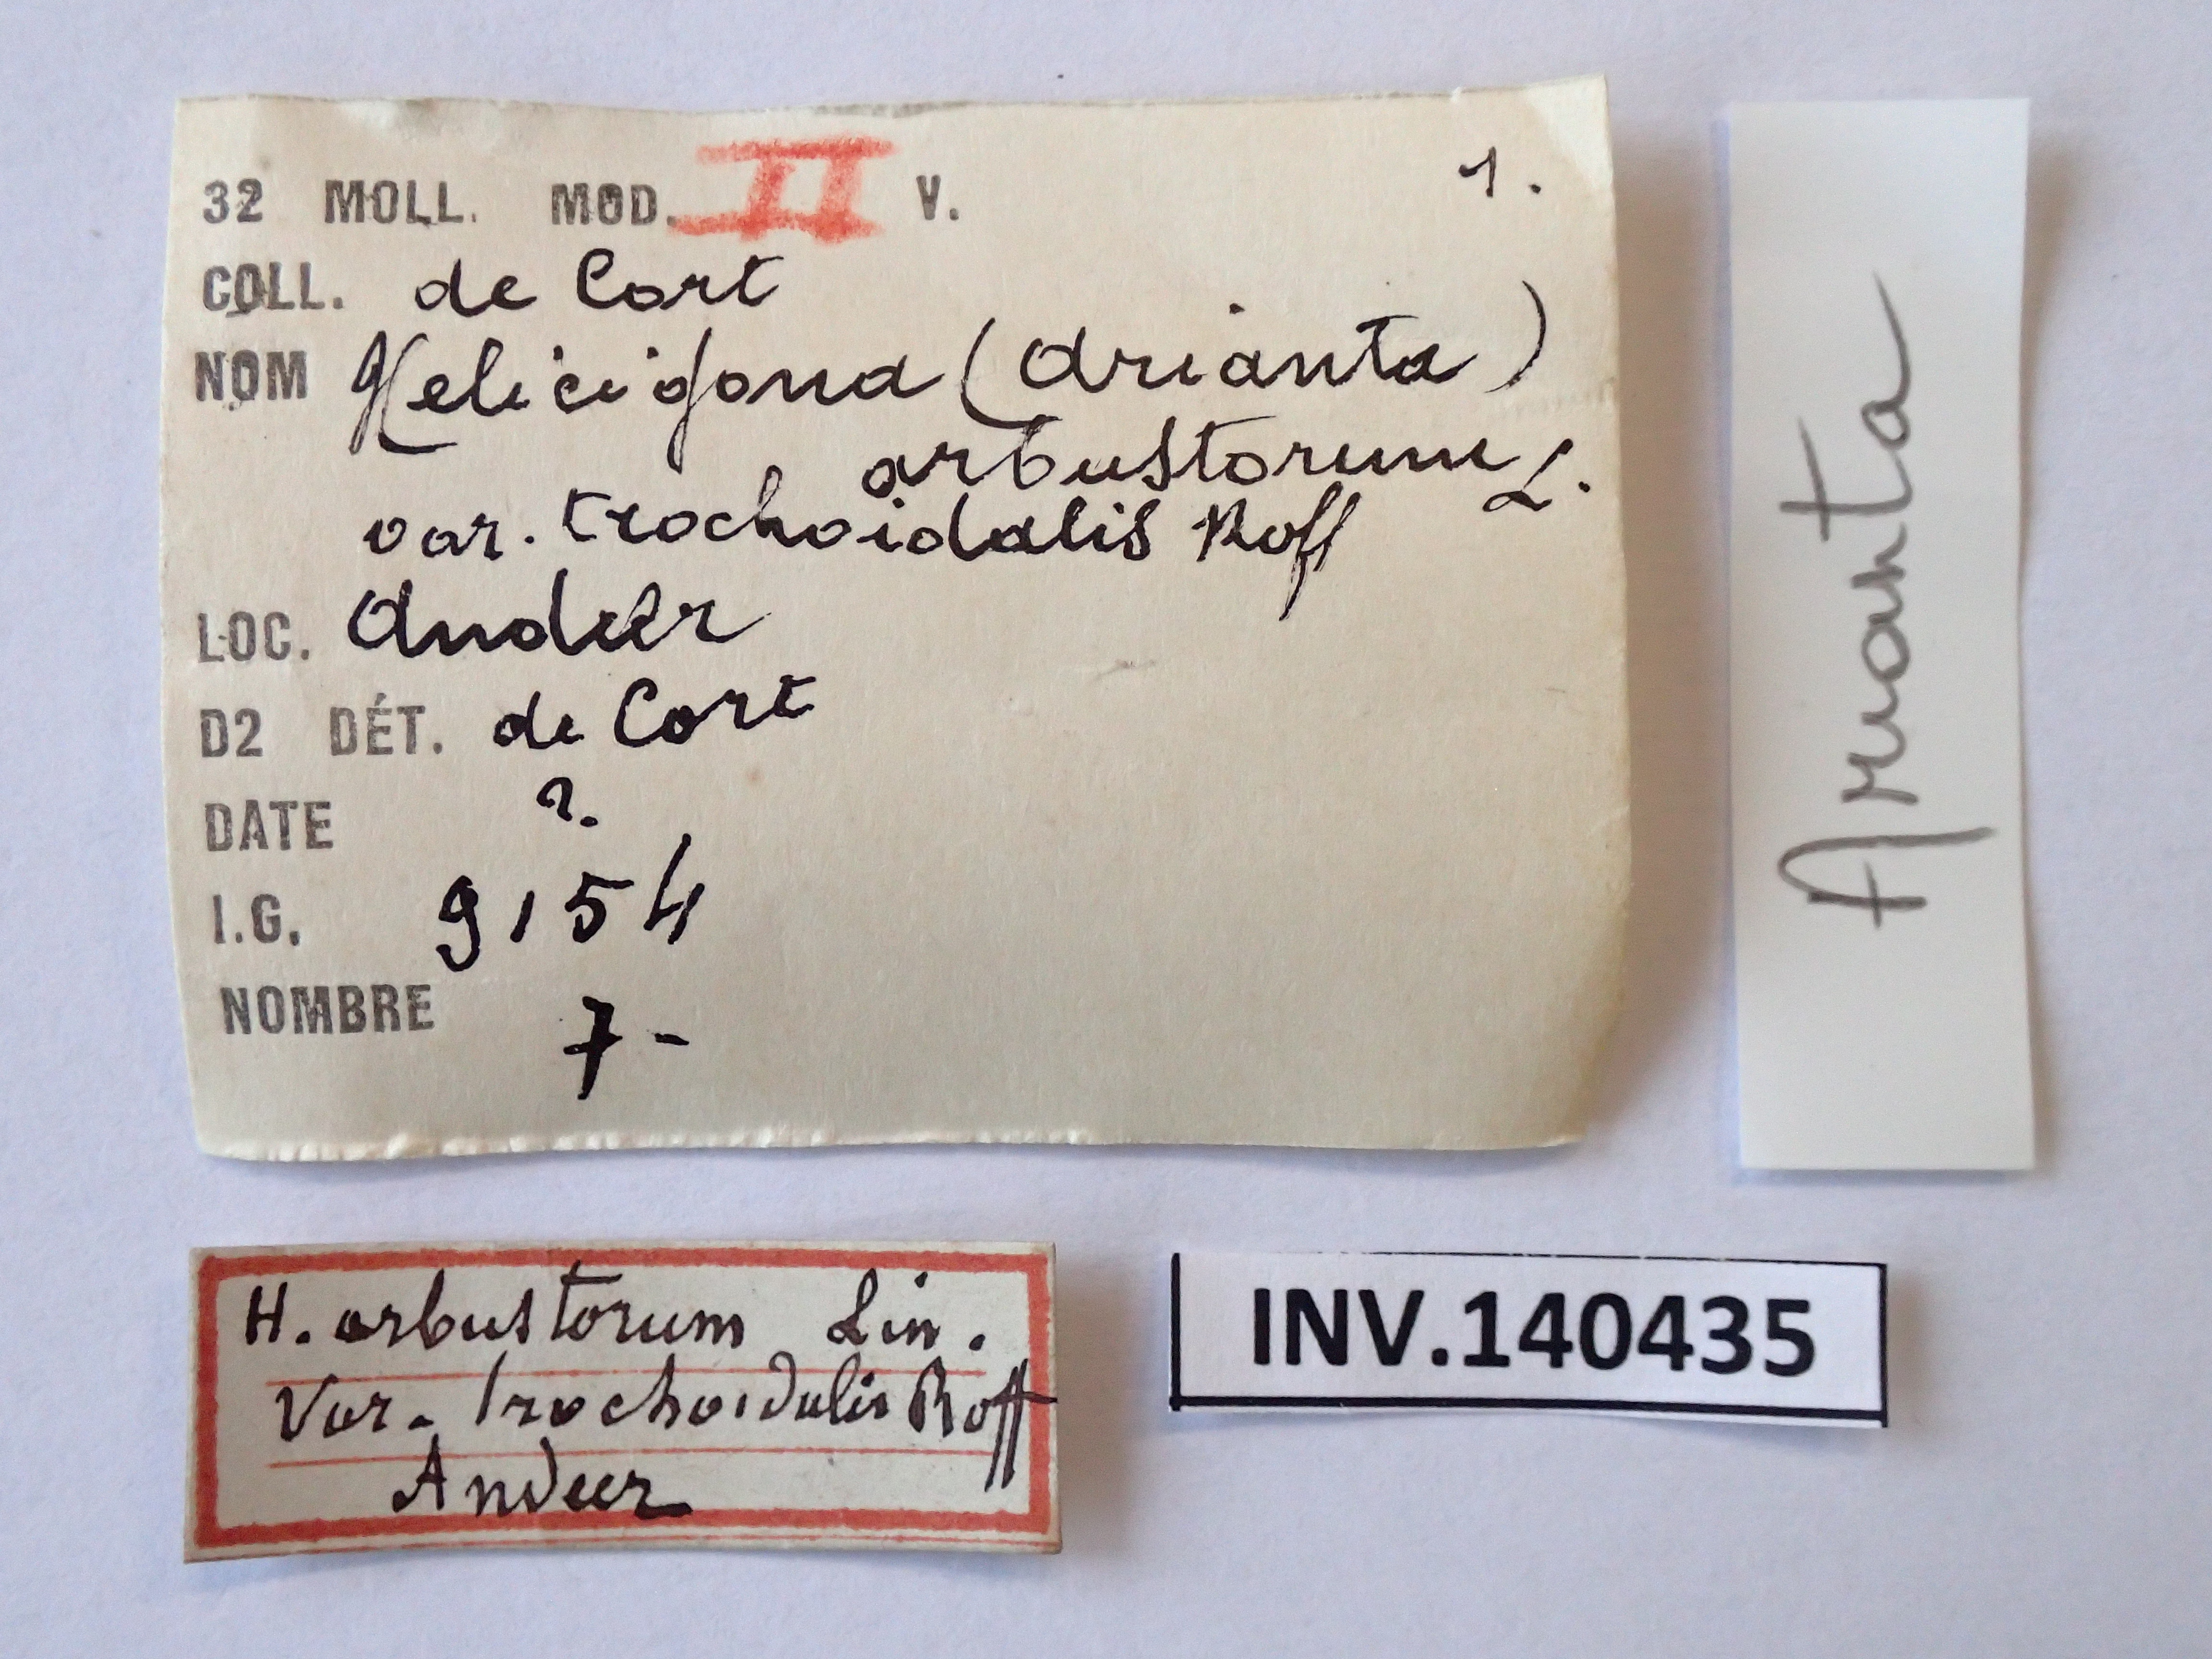 32 MOLL. MOD. II V. 1.
COLL. de Cort
NOM Helicigona (Arianta)
arbustorum L.
var. trochoidalis Roff
LOC. Andeer
D2 DÉT. de Cort
DATE ?.
I.G. 9154
NOMBRE 7-
Arianta
H. arbustorum Lin.
Var. trochoidalis Roff
Andeer
INV.140435